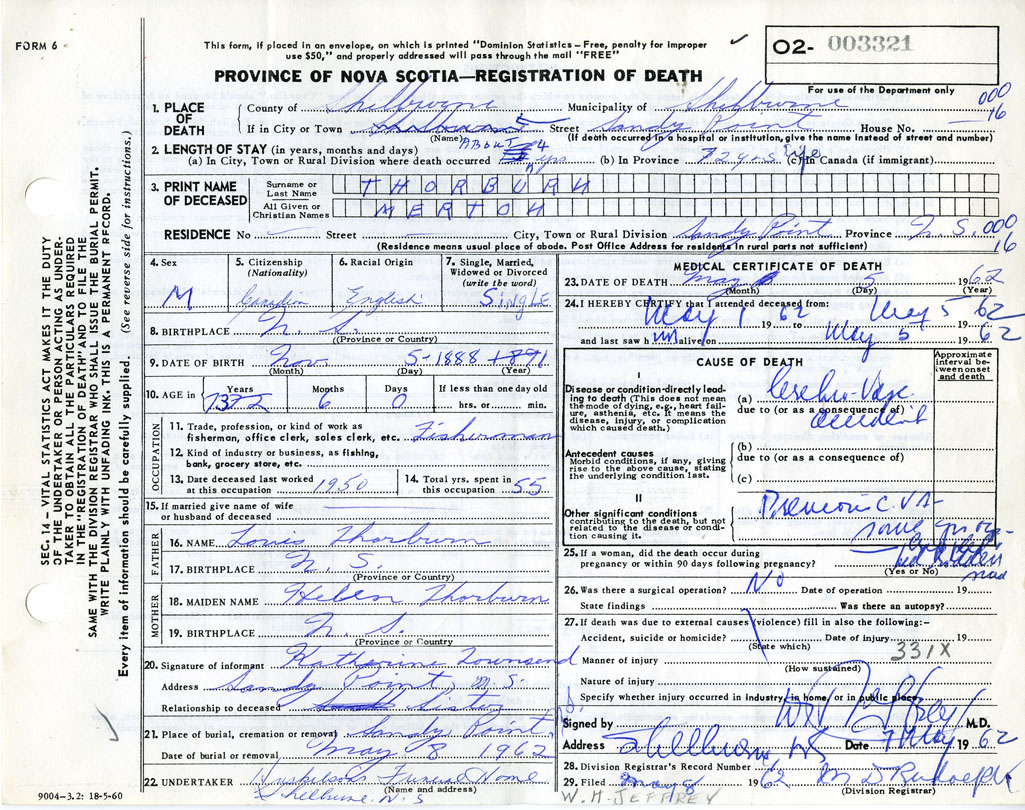 FORM 6
This form, if placed in an envelope, on which is printed "Dominion Statistics – Free, penalty for improper
use $50," and properly addressed will pass through the mail "FREE"
✓
02- 003321
For use of the Department only
PROVINCE OF NOVA SCOTIA—REGISTRATION OF DEATH
000
16
1. PLACE OF DEATH
County of Shelburne Municipality of Shelburne
If in City or Town Street Sandy Point House No.
(Name) (If death occurred in a hospital or institution, give the name instead of street and number)
2. LENGTH OF STAY (in years, months and days)
(a) In City, Town or Rural Division where death occurred ABOUT 4 yrs (b) In Province 72 yrs. (c) In Canada (if immigrant) Life
3. PRINT NAME OF DECEASED
Surname or Last Name THORBURN
All Given or Christian Names MERTON
RESIDENCE No Street City, Town or Rural Division Sandy Point Province N. S. 000
16
(Residence means usual place of abode. Post Office Address for residents in rural parts not sufficient)
4. Sex M
5. Citizenship (Nationality) Canadian
6. Racial Origin English
7. Single, Married, Widowed or Divorced (write the word) SINGLE
8. BIRTHPLACE N. S.
(Province or Country)
9. DATE OF BIRTH Nov. 5- 1888 1891
(Month) (Day) (Year)
10. AGE in Years Months 6 Days 0 If less than one day old hrs. or min.
OCCUPATION
11. Trade, profession, or kind of work as fisherman, office clerk, sales clerk, etc. Fisherman
12. Kind of industry or business, as fishing, bank, grocery store, etc.
13. Date deceased last worked at this occupation 1950
14. Total yrs. spent in this occupation 55
15. If married give name of wife or husband of deceased
FATHER
16. NAME Louis Thorburn
17. BIRTHPLACE N. S.
(Province or Country)
MOTHER
18. MAIDEN NAME Helen Thorburn
19. BIRTHPLACE N. S.
(Province or Country)
20. Signature of informant Katherine Townsend
Address Sandy Point, N. S.
Relationship to deceased Sister
21. Place of burial, cremation or removal Sandy Point, N.S.
Date of burial or removal May 8 1962
22. UNDERTAKER Funeral Home
(Name and address)
Shelburne. N. S
9004-3.2: 18-5-60
MEDICAL CERTIFICATE OF DEATH
23. DATE OF DEATH May 5 1962
(Month) (Day) (Year)
24. I HEREBY CERTIFY that I attended deceased from:
May 1 19 62 to May 5 62
and last saw him alive on May 5 19 62
CAUSE OF DEATH
Approximate interval between onset and death
I
Disease or condition directly leading to death (This does not mean the mode of dying, e.g., heart failure, asthenia, etc. It means the disease, injury, or complication which caused death.)
(a) Cerebro Vasc
due to (or as a consequence of)
accident
Antecedent causes
Morbid conditions, if any, giving rise to the above cause, stating the underlying condition last.
(b)
due to (or as a consequence of)
(c)
II
Other significant conditions contributing to the death, but not related to the disease or condition causing it.
Previous C.V.A.
25. If a woman, did the death occur during pregnancy or within 90 days following pregnancy?
(Yes or No)
26. Was there a surgical operation? No Date of operation 19
State findings Was there an autopsy?
27. If death was due to external causes (violence) fill in also the following:–
Accident, suicide or homicide? Date of injury 19
(State which)
331X
Manner of injury
(How sustained)
Nature of injury
Specify whether injury occurred in industry, in home, or in public place
Signed by M.D.
Address Shelburne NS Date 7 May 19 62
28. Division Registrar's Record Number
29. Filed May 8 1962
(Division Registrar)
W. H. JEFFREY
SEC. 14 – VITAL STATISTICS ACT MAKES IT THE DUTY
OF THE UNDERTAKER OR PERSON ACTING AS UNDER-
TAKER TO OBTAIN ALL THE PARTICULARS REQUIRED
IN THE "REGISTRATION OF DEATH" AND TO FILE THE
SAME WITH THE DIVISION REGISTRAR WHO SHALL ISSUE THE BURIAL PERMIT.
WRITE PLAINLY WITH UNFADING INK. THIS IS A PERMANENT RECORD.
Every item of information should be carefully supplied. (See reverse side for instructions.)